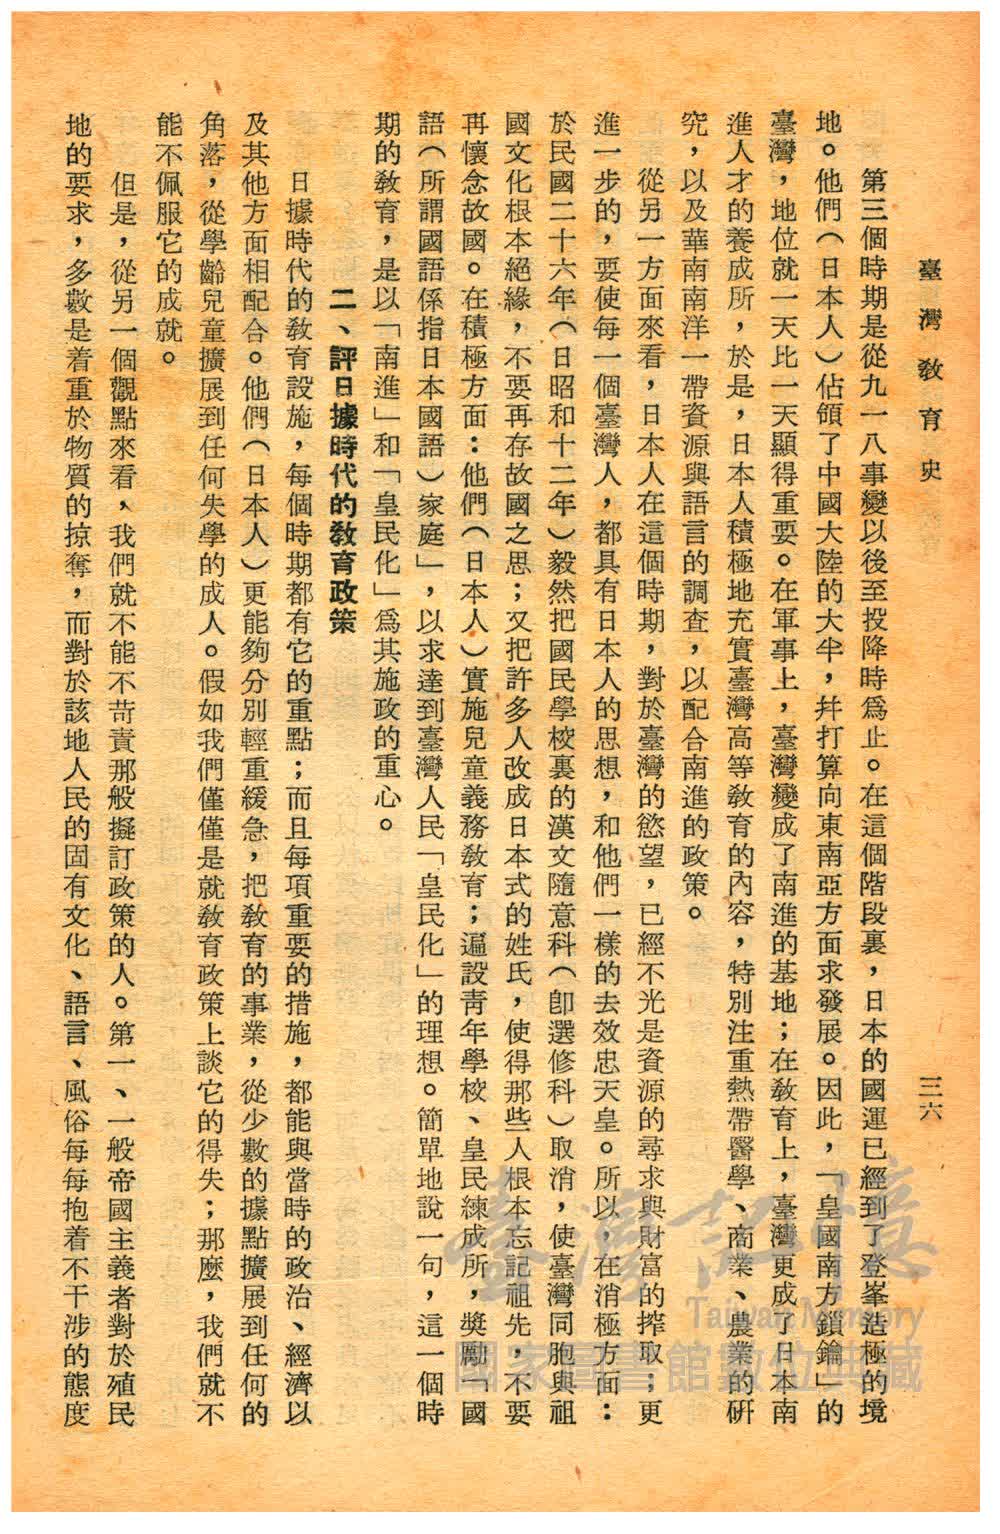 臺灣敎育史
三六
第三個時期是從九一八事變以後至投降時爲止。在這個階段裏，日本的國運已經到了登峯造極的境
地。他們（日本人）佔領了中國大陸的大半，幷打算向東南亞方面求發展。因此，「皇國南方鎖鑰」的
臺灣，地位就一天比一天顯得重要。在軍事上，臺灣變成了南進的基地；在敎育上，臺灣更成了日本南
進人才的養成所，於是，日本人積極地充實臺灣高等敎育的內容，特別注重熱帶醫學、商業、農業的硏
究，以及華南南洋一帶資源與語言的調查，以配合南進的政策。
從另一方面來看，日本人在這個時期，對於臺灣的慾望，已經不光是資源的尋求與財富的搾取；更
進一步的，要使每一個臺灣人，都具有日本人的思想，和他們一樣的去效忠天皇。所以，在消極方面：
於民國二十六年（日昭和十二年）毅然把國民學校裏的漢文隨意科（卽選修科）取消，使臺灣同胞與祖
國文化根本絕緣，不要再存故國之思；又把許多人改成日本式的姓氏，使得那些人根本忘記祖先，不要
再懷念故國。在積極方面：他們（日本人）實施兒童義務敎育；遍設靑年學校、皇民練成所，獎勵「國
語（所謂國語係指日本國語）家庭」，以求達到臺灣人民「皇民化」的理想。簡單地說一句，這一個時
期的敎育，是以「南進」和「皇民化」爲其施政的重心。
二、評日據時代的敎育政策
日據時代的敎育設施，每個時期都有它的重點；而且每項重要的措施，都能與當時的政治、經濟以
及其他方面相配合。他們（日本人）更能夠分別輕重緩急，把敎育的事業，從少數的據點擴展到任何的
角落，從學齡兒童擴展到任何失學的成人。假如我們僅僅是就敎育政策上談它的得失；那麼，我們就不
能不佩服它的成就。
但是，從另一個觀點來看，我們就不能不苛責那般擬訂政策的人。第一、一般帝國主義者對於殖民
地的要求，多數是着重於物質的掠奪，而對於該地人民的固有文化、語言、風俗每每抱着不干涉的態度
臺灣記憶
Taiwan Memory
國家圖書館數位典藏